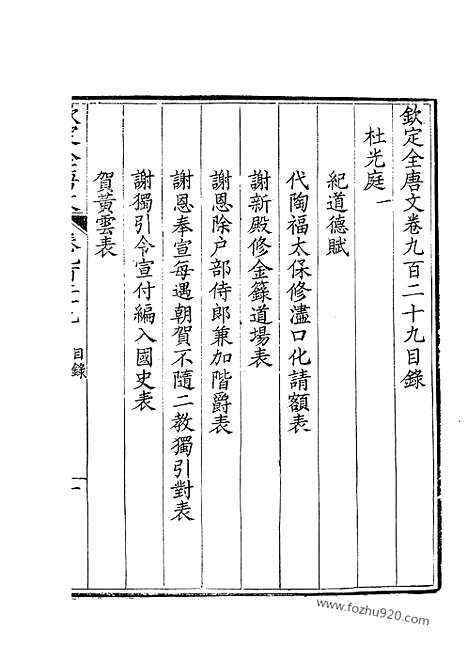 欽定全唐文卷九百二十九目錄
杜光庭一
紀道德賦
代陶福太保修濜口化請額表
謝新殿修金籙道場表
謝恩除戶部侍郎兼加階爵表
謝恩奉宣每遇朝賀不隨二教獨引對表
謝獨引令宣付編入國史表
賀黃雲表
欽定全唐文 卷九百二十九 目錄 一
www.fozhu920.com